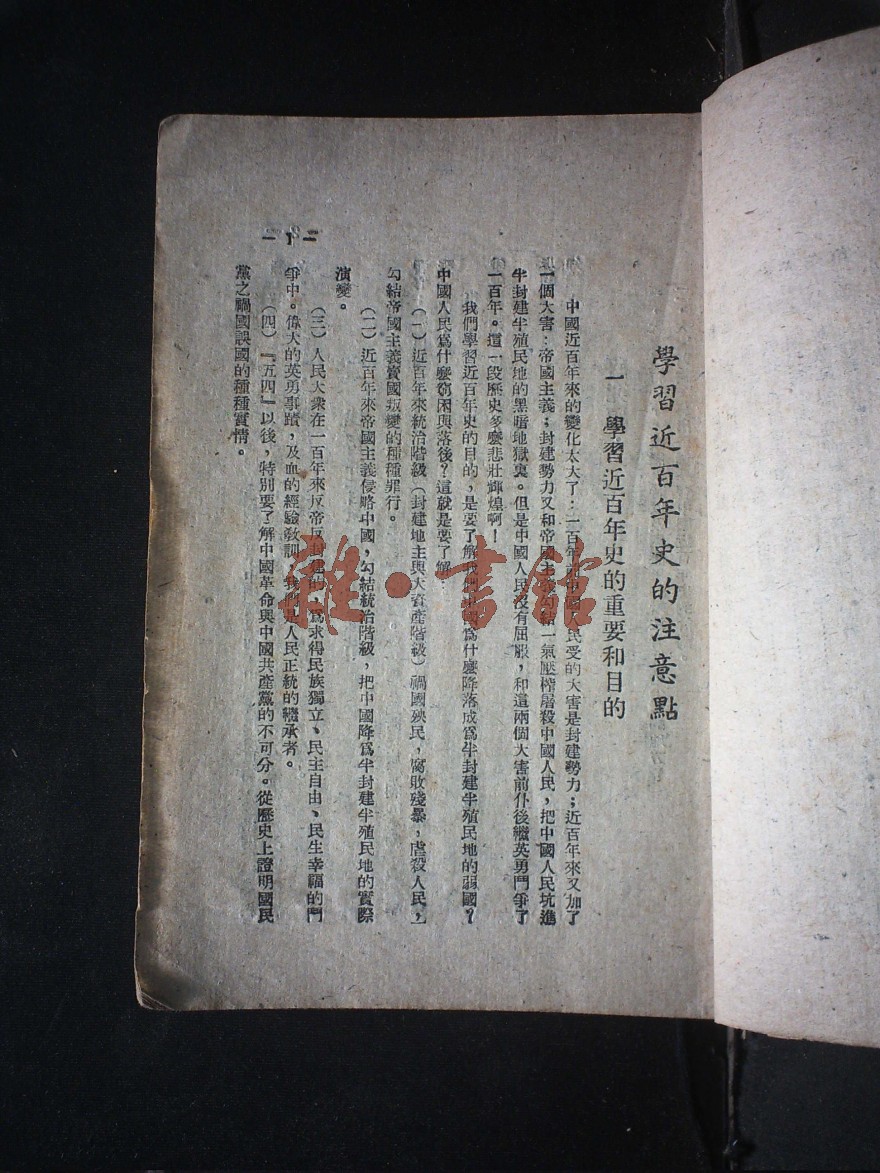 學習近百年史的注意點
一 學習近百年史的重要和目的
中國近百年來的變化太大了：一百年前中國人民受的大害是封建勢力；近百年來又加了
一個大害：帝國主義；封建勢力又和帝國主義勾結一氣壓榨屠殺中國人民，把中國人民坑進
半封建半殖民地的黑暗地獄裏。但是中國人民沒有屈服，和這兩個大害前仆後繼英勇鬥爭了
一百年。這一段歷史多麼悲壯輝煌啊！
我們學習近百年史的目的，是要了解我們中國爲什麼降落成爲半封建半殖民地的弱國？
中國人民爲什麼窮困與落後？這就是要了解：
（一）近百年來統治階級（封建地主與大資產階級）禍國殃民，腐敗殘暴，虐殺人民，
勾結帝國主義賣國叛變的種種罪行。
（二）近百年來帝國主義侵略中國，勾結統治階級，把中國降爲半封建半殖民地的實際
演變。
（三）人民大衆在一百年來反帝反封建的，爲求得民族獨立、民主自由、民生幸福的鬥
爭中。偉大的英勇事蹟，及血的經驗敎訓，我們是人民正統的繼承者。
（四）『五四』以後，特別要了解中國革命與中國共產黨的不可分。從歷史上證明國民
黨之禍國誤國的種種實情。
— 1 —
雜·書館